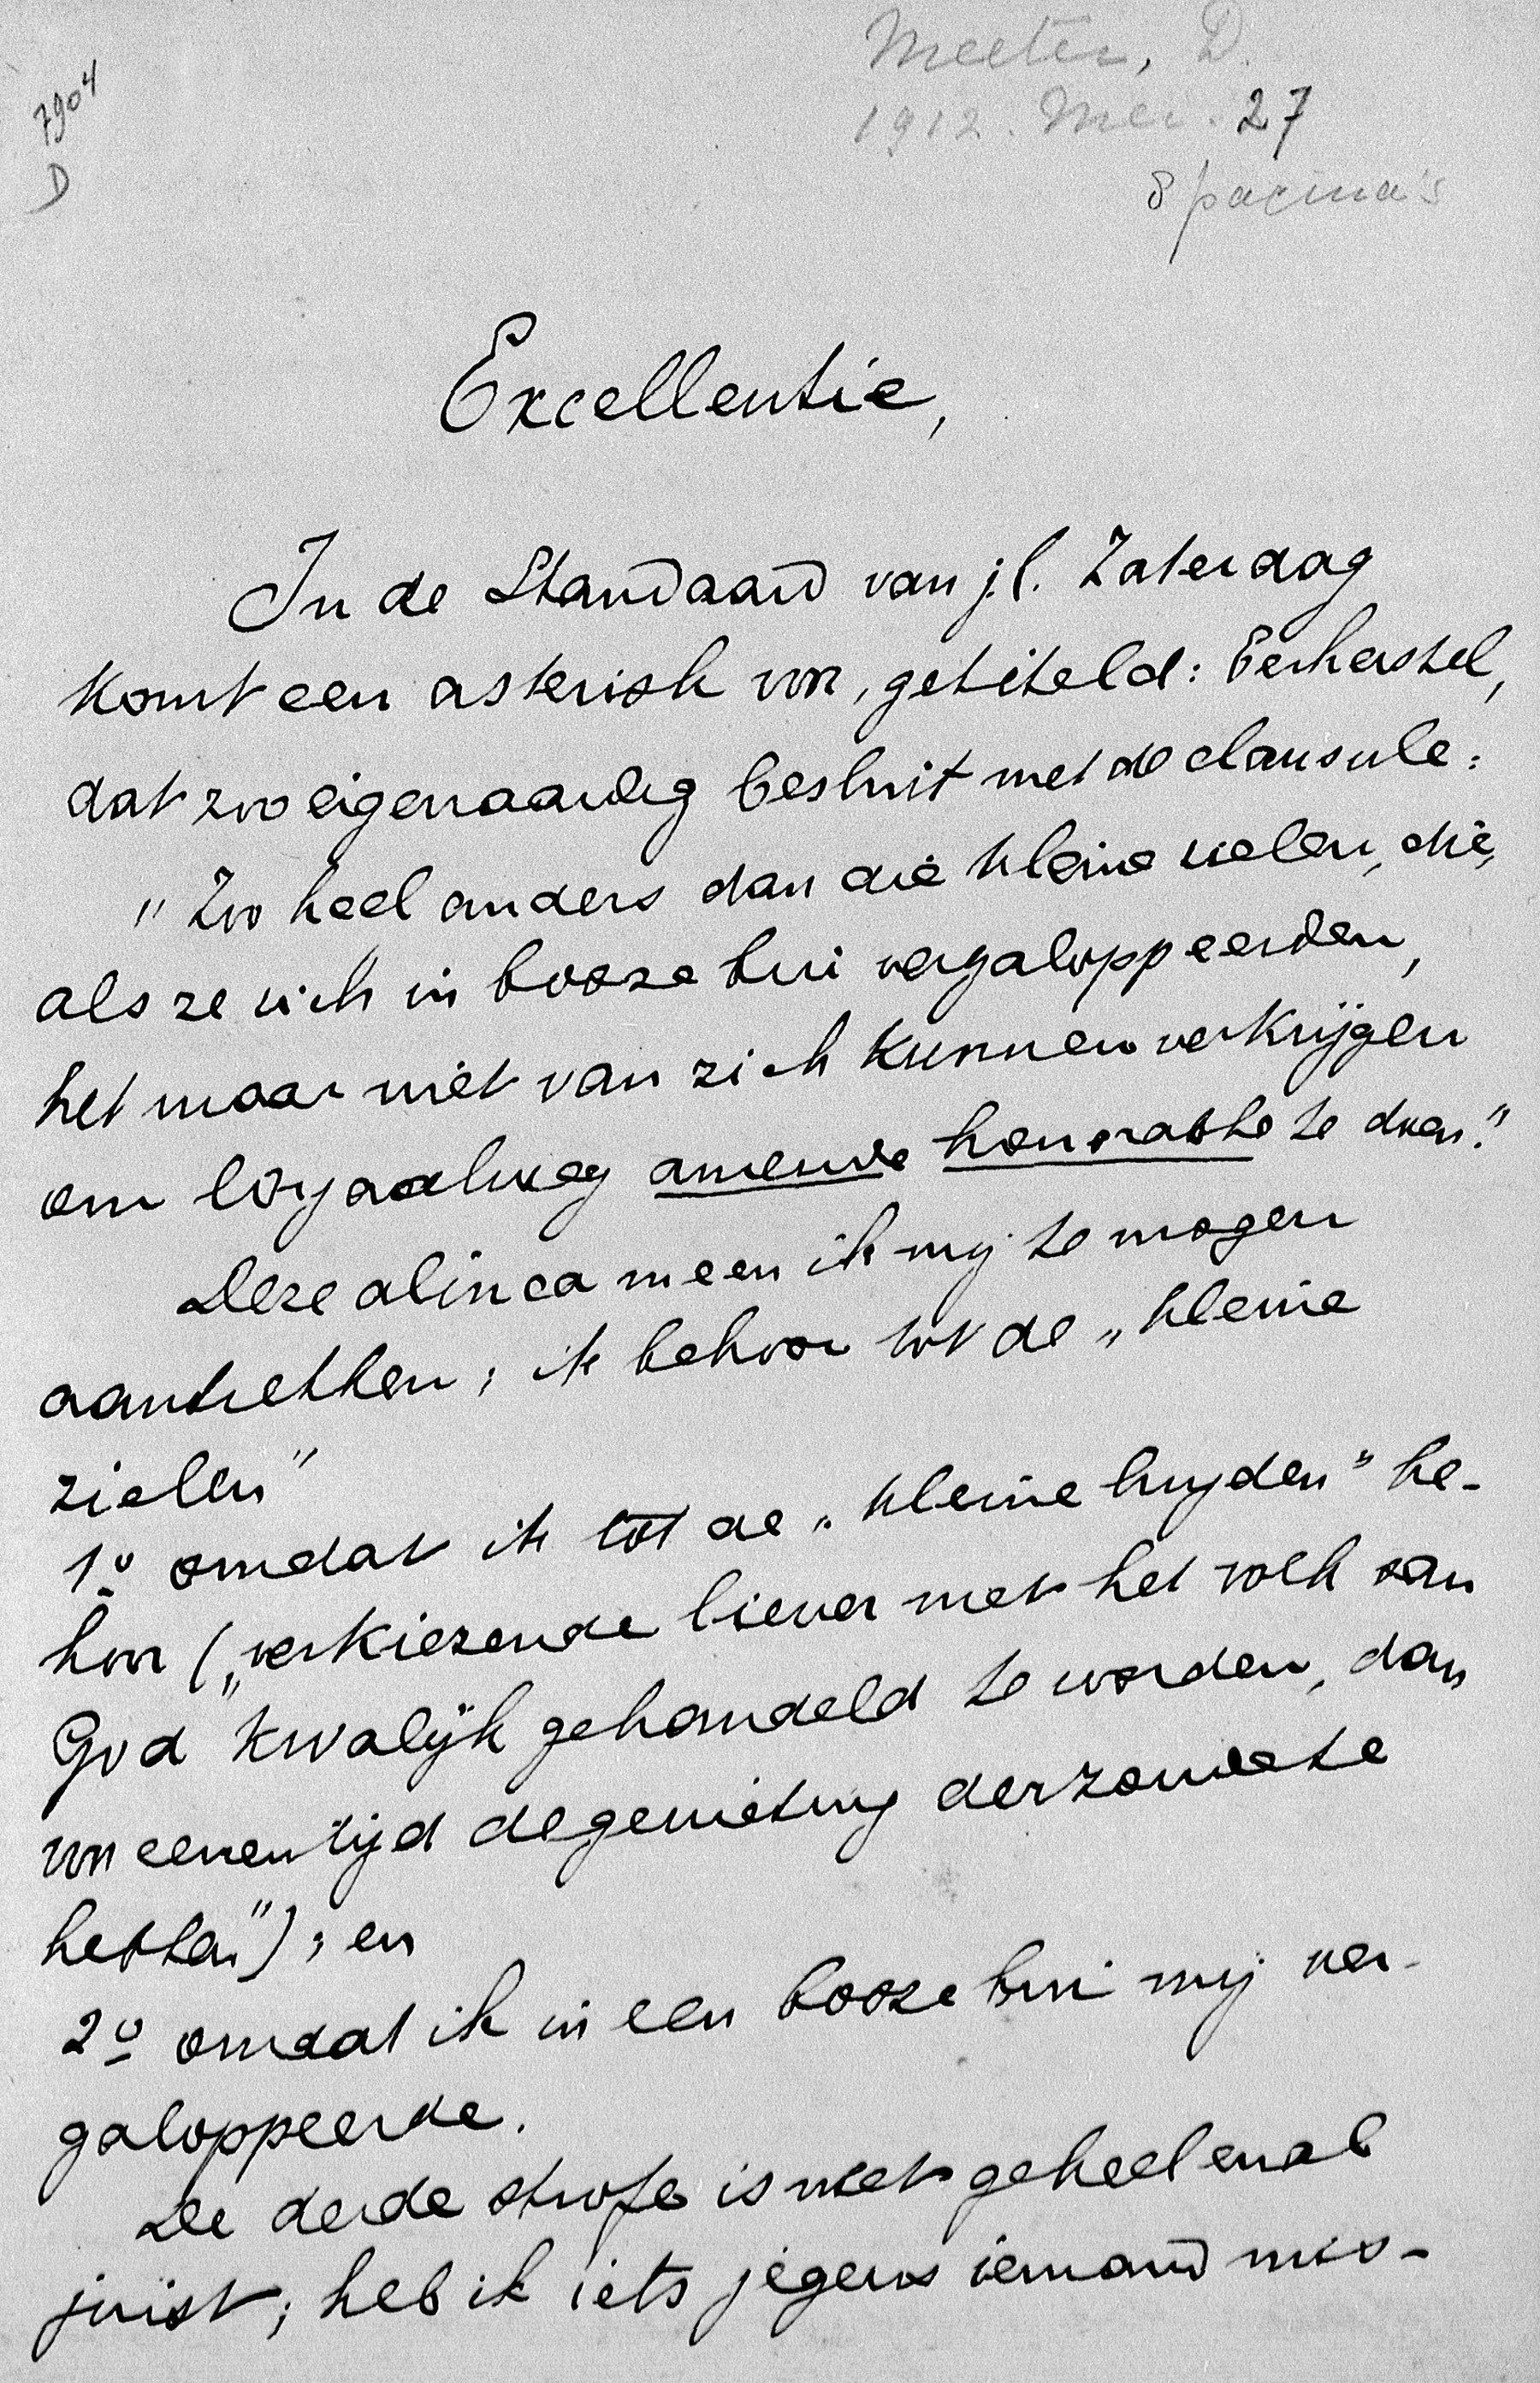 7904
D
Meeter, D.
1912. Mei. 27
8 pagina's
Excellentie,
In de Standaard van j.l. Zaterdag
komt een asterisk voor, getiteld: Eerherstel,
dat zoo eigenaardig besluit met de clausule:
"Zoo heel anders dan die kleine zielen, die,
als ze zich in booze bui vergaloppeerden,
het maar niet van zich kunnen verkrijgen
om loyaalweg amende honorable te doen."
Deze alinea meen ik mij te mogen
aantrekken; ik behoor tot de „kleine
zielen"
1º omdat ik tot de „kleine luyden" be-
hoor („verkiezende liever met het volk van
God kwalijk gehandeld te worden, dan
voor eenen tijd de genieting der zonde te
hebben"); en
2º omdat ik in een booze bui mij ver-
galoppeerde.
De derde strofe is niet geheel en al
juist; heb ik iets jegens iemand mis-